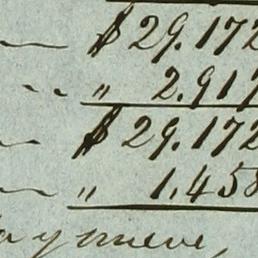 $ 29.172
„ 2.917
$ 29.172
„ 1.458